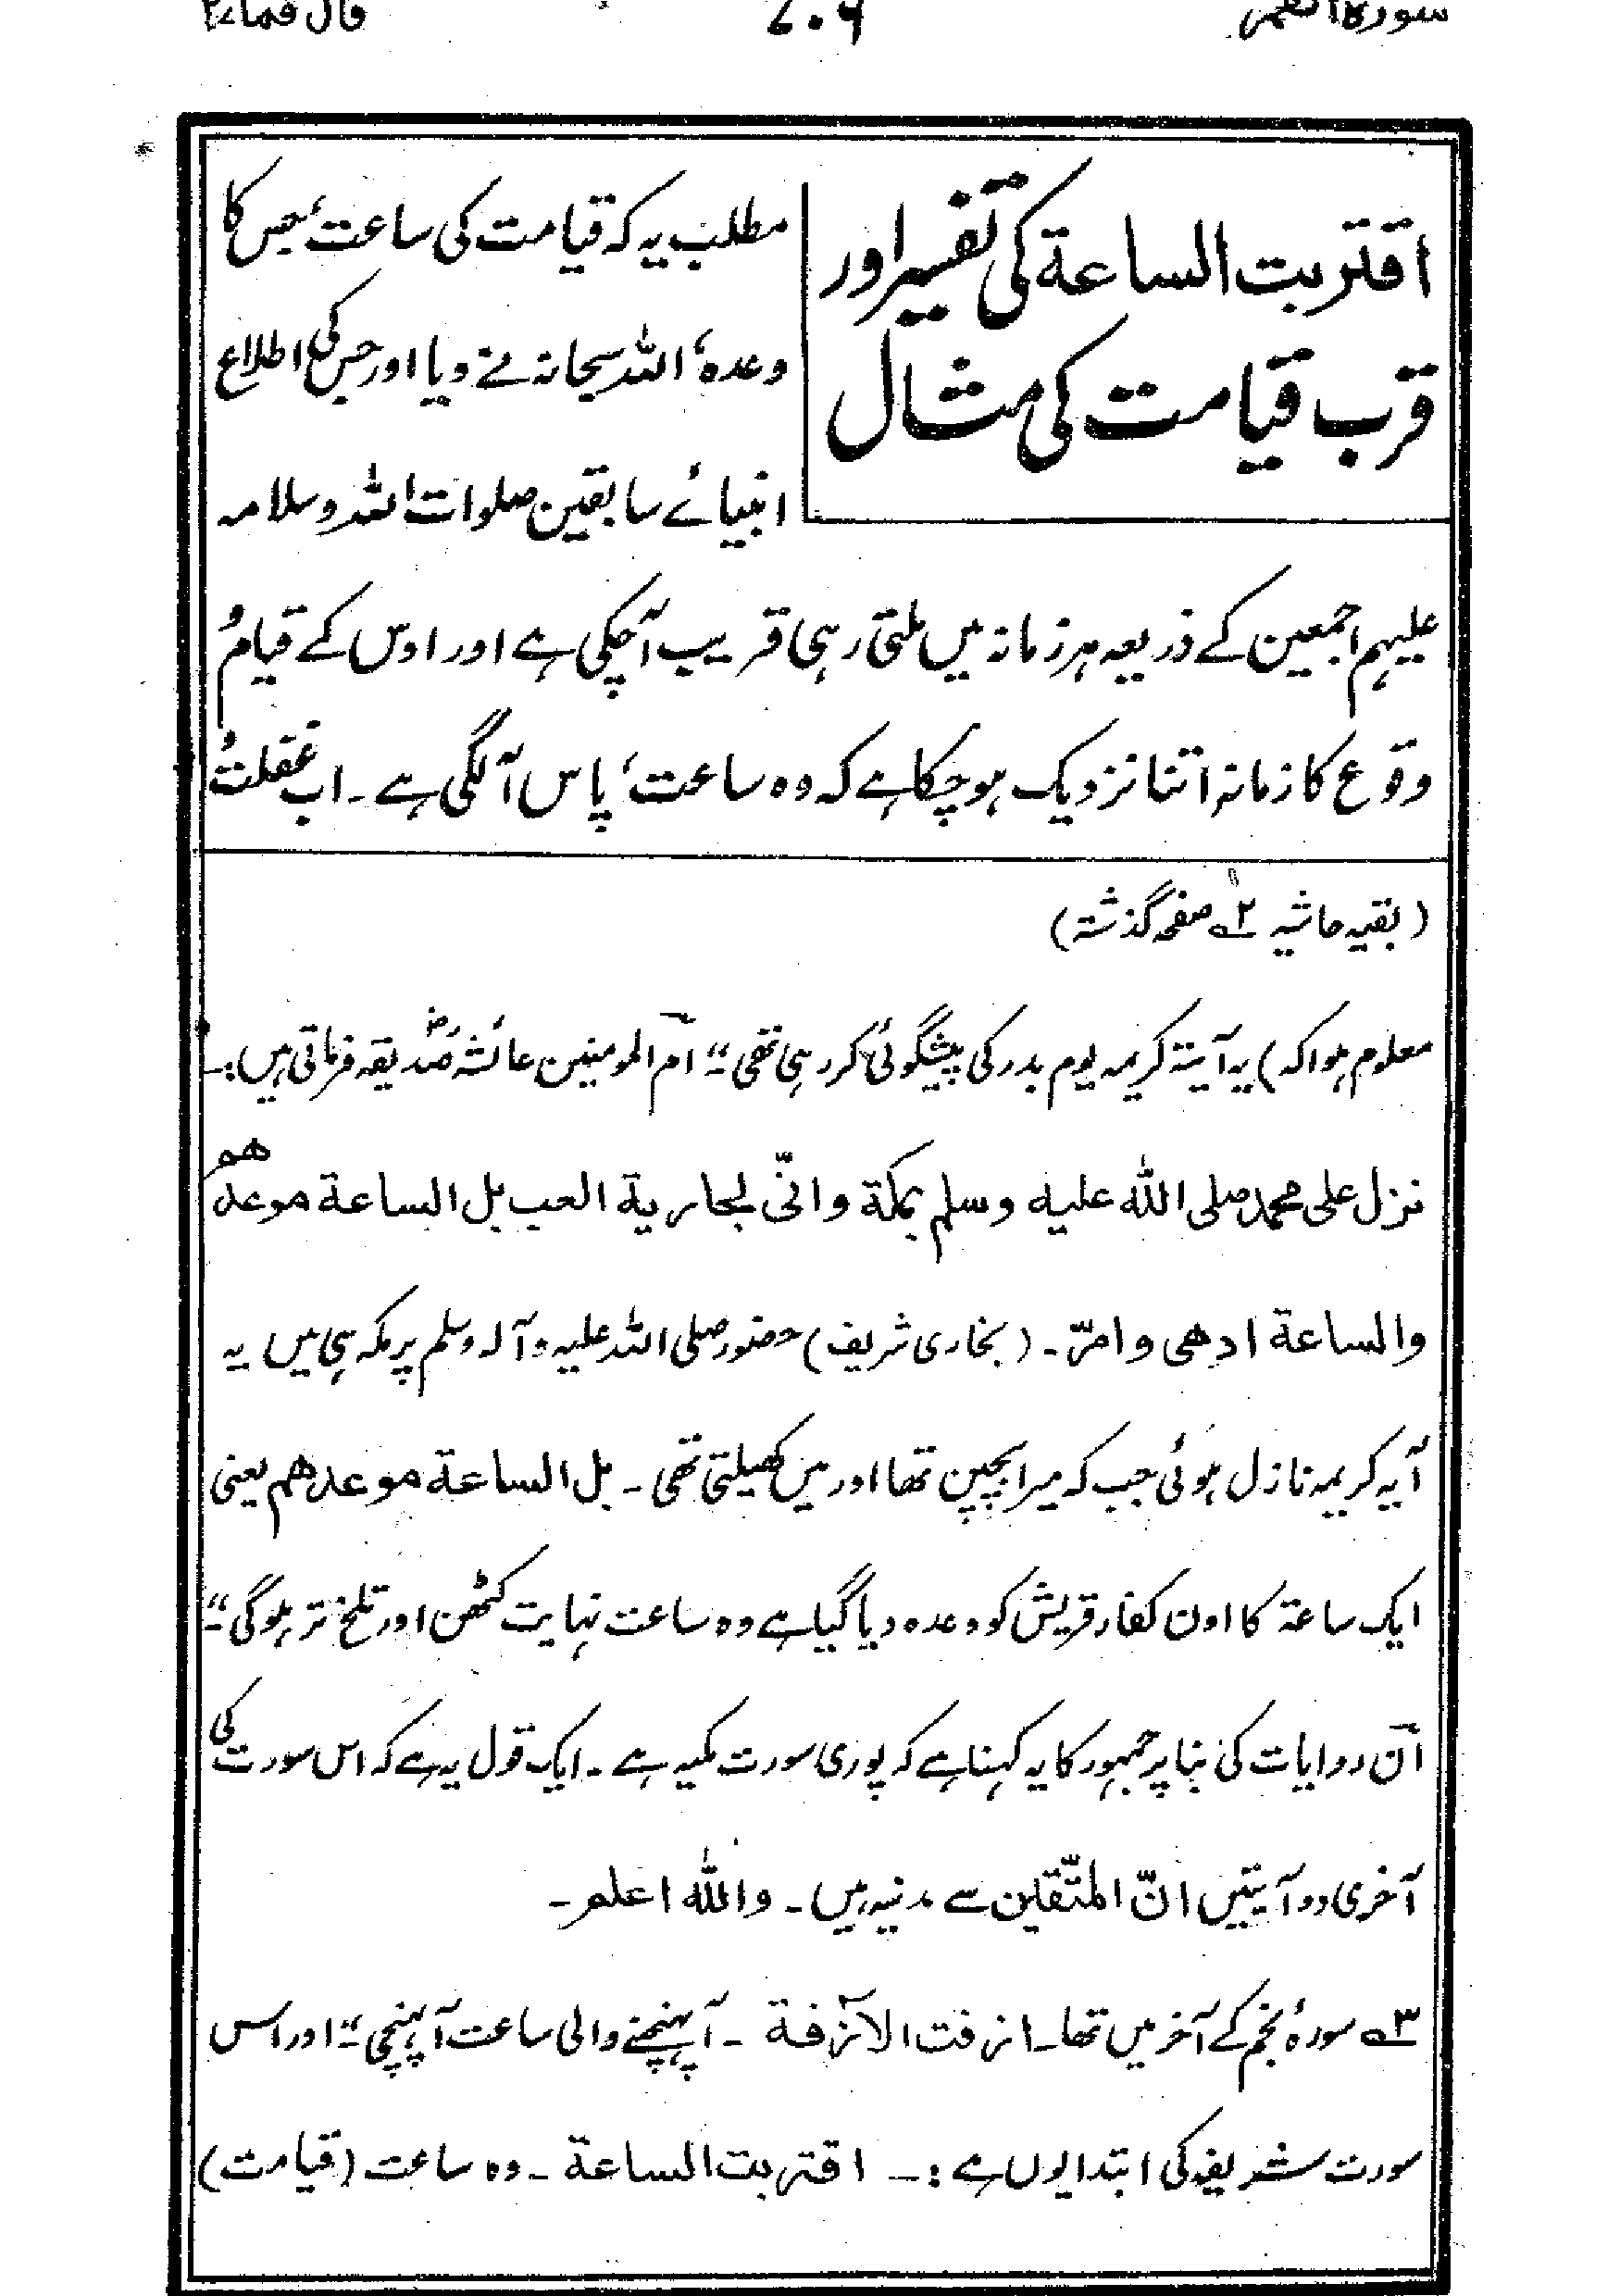 سورۃ القمر
۷۰۶
قال فما ۲۷
اقتربت الساعۃ کی تفسیر اور
قرب قیامت کی مثال
مطلب یہ کہ قیامت کی ساعت، جس کا
وعدہ، اللہ سبحانہ نے دیا اور جس کی اطلاع
انبیائے سابقین صلوات اللہ وسلامہ
علیہم اجمعین کے ذریعہ ہر زمانہ میں ملتی رہی قریب آچکی ہے اور اوس کے قیام و
وقوع کا زمانہ اتنا نزدیک ہوچکا ہے کہ وہ ساعت، پاس آلگی ہے۔ اب غفلت و
(بقیہ حاشیہ ۲ صفحہ گذشتہ)
معلوم ہوا کہ) یہ آیۃ کریمہ یوم بدر کی پیشگوئی کر رہی تھی"۔ ام المومنین عائشہ صدیقہ فرماتی ہیں:۔
نزل علی محمد صلی اللہ علیہ وسلم بمکۃ وانّی لجاریۃ العب بل الساعۃ موعدھم
والساعۃ ادھی وامرّ۔ (بخاری شریف) حضور صلی اللہ علیہ وآلہ وسلم پر مکہ ہی میں یہ
آیہ کریمہ نازل ہوئی جب کہ میرا بچپن تھا اور میں کھیلتی تھی۔ بل الساعۃ موعدھم یعنی
ایک ساعۃ کا اون کفار قریش کو وعدہ دیا گیا ہے وہ ساعت نہایت کٹھن اور تلخ تر ہوگی"۔
ان روایات کی بنا پر جمہور کا یہ کہنا ہے کہ پوری سورت مکیہ ہے۔ ایک قول یہ ہے کہ اس سورت کی
آخری دو آیتیں انّ المتّقین سے مدنیہ ہیں۔ واللہ اعلم۔
۳ سورۂ نجم کے آخر میں تھا۔ ازفت الآزفۃ۔ آپہنچنے والی ساعت آپہنچی"۔ اور اس
سورت شریفہ کی ابتدا یوں ہے:۔ اقتربت الساعۃ۔ وہ ساعت (قیامت)